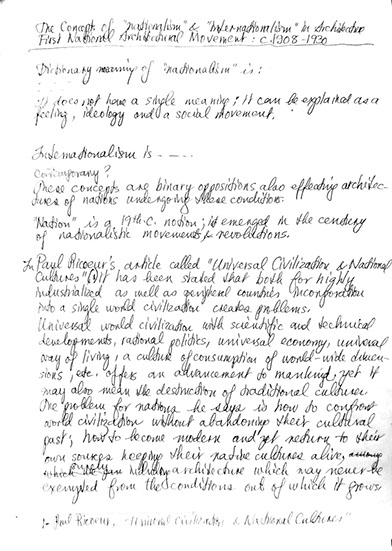 The Concepts of "nationalism" & "Internationalism" in Architecture
First National Architectural Movement : c. 1908-1930
Dictionary meaning of "nationalism" is :
It does not have a single meaning ; it can be explained as a
feeling, ideology and a social movement.
Internationalism is - - - -
Contemporary ?
These concepts are binary oppositions also effecting architec-
tures of nations undergoing these conditions.
"Nation" is a 19th C. notion ; it emerged in the century
of nationalistic movements & revolutions.
In Paul Ricoeur's article called "Universal Civilization & National
Cultures" (1) it has been stated that both for highly
industrialized as well as peripheral countries incorporation
into a single world civilization creates problems.
Universal world civilization with scientific and technical
developments, rational politics, universal economy, universal
way of living, a culture of consumption of world-wide dimen-
sions, etc. offers an advancement to mankind, yet it
may also mean the destruction of traditional cultures.
The problem for nations he says is how to confront
world civilization without abandoning their cultural
past ; how to become modern and yet return to their
own sources keeping their native cultures alive, among
which architecture which may never be
exempted from the conditions out of which it grows.
1- Paul Ricoeur, "Universal Civilization & National Cultures"